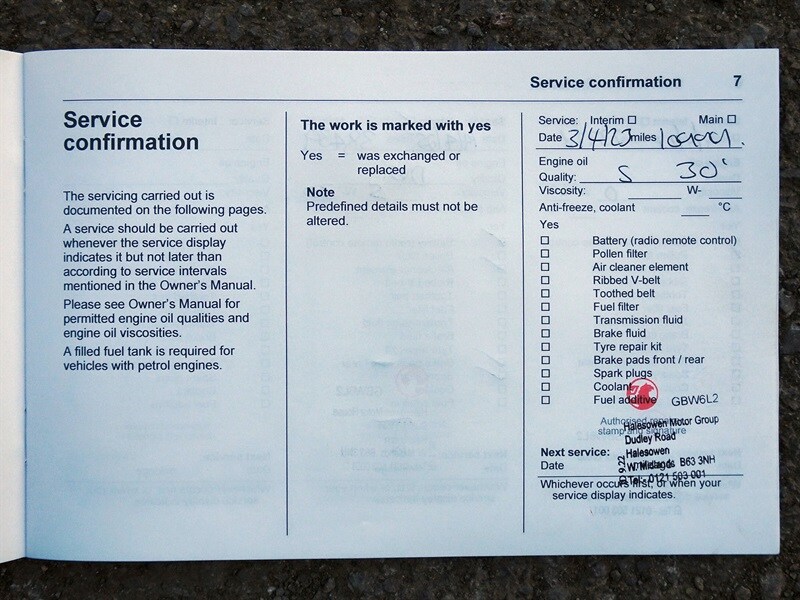 Service confirmation 7
Service
confirmation
The servicing carried out is
documented on the following pages.
A service should be carried out
whenever the service display
indicates it but not later than
according to service intervals
mentioned in the Owner's Manual.
Please see Owner's Manual for
permitted engine oil qualities and
engine oil viscosities.
A filled fuel tank is required for
vehicles with petrol engines.
The work is marked with yes
Yes = was exchanged or
replaced
Note
Predefined details must not be
altered.
Service: Interim ☐ Main ☐
Date 3/4/23 miles
Engine oil
Quality: S 30
Viscosity: W-
Anti-freeze, coolant °C
Yes
☐ Battery (radio remote control)
☐ Pollen filter
☐ Air cleaner element
☐ Ribbed V-belt
☐ Toothed belt
☐ Fuel filter
☐ Transmission fluid
☐ Brake fluid
☐ Tyre repair kit
☐ Brake pads front / rear
☐ Spark plugs
☐ Coolant
☐ Fuel additive GBW6L2
Authorised
stamp and signature
Halesowen Motor Group
Dudley Road
Halesowen
W. Midlands B63 3NH
Tel: 0121 503 001
Next service:
Date
Whichever occurs first, or when your
service display indicates.